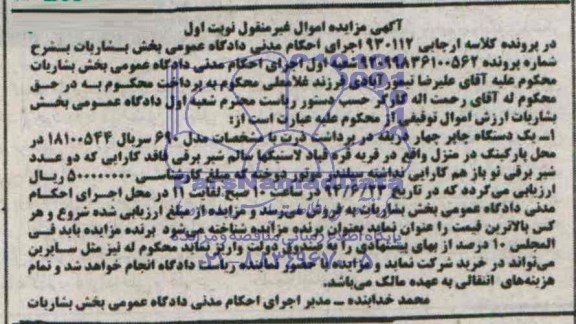 آگهی مزایده اموال غیرمنقول نوبت اول
در پرونده کلاسه ارجایی ۹۳۰۱۱۲ اجرای احکام مدنی دادگاه عمومی بخش بشاریات بشرح
شماره پرونده شعبه اول اجرای احکام مدنی دادگاه عمومی بخش بشاریات
محکوم علیه آقای علیرضا تیمورآبادی فرزند غلامعلی محکوم به پرداخت محکوم به در حق
محکوم له آقای رحمت اله کارگر حسب دستور ریاست محترم شعبه اول دادگاه عمومی بخش
بشاریات ارزش اموال توقیفی از محکوم علیه عبارت است از:
۱ـ یک دستگاه چاپر چهار ردیفه در برداشت ذرت با مشخصات مدل ۶۹۰ سریال ۱۸۱۰۰۵۴۴ در
محل پارکینگ در منزل واقع در قریه قره قباد لاستیکها سالم شیر برقی فاقد کارایی که دو عدد
شیر برقی نو باز هم کارایی نداشته سیلندر موتور دوخته که مبلغ کارشناسی ۵۰۰۰۰۰۰۰ ریال
ارزیابی می‌گردد که در تاریخ ساعت صبح لغایت در محل اجرای احکام
مدنی دادگاه عمومی بخش بشاریات به فروش می‌رسد و مزایده از مبلغ ارزیابی شده شروع و هر
کس بالاترین قیمت را عنوان نماید بعنوان برنده مزایده شناخته می‌شود برنده مزایده باید فی
المجلس ۱۰ درصد از بهای پیشنهادی را به صندوق دولت واریز نماید محکوم له نیز مثل سایرین
می‌تواند در خرید شرکت نماید و مزایده با حضور نماینده ریاست دادگاه انجام خواهد شد و تمام
هزینه‌های انتقالی به عهده مالک می‌باشد.
محمد خدابنده ـ مدیر اجرای احکام مدنی دادگاه عمومی بخش بشاریات